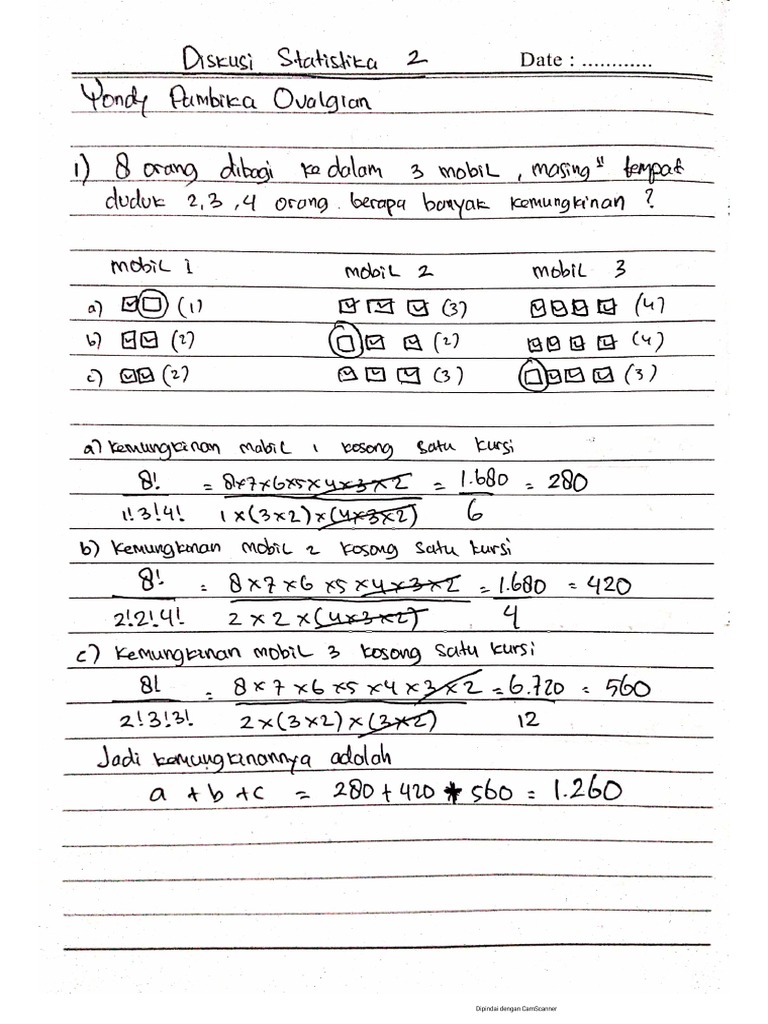 Diskusi Statistika 2 Date : ............
Yondy Pambika Ovalgian
1) 8 orang dibagi ke dalam 3 mobil, masing" tempat
duduk 2,3,4 orang. berapa banyak kemungkinan ?
mobil 1 mobil 2 mobil 3
a) (1) (3) (4)
b) (2) (2) (4)
c) (2) (3) (3)
a) Kemungkinan mobil 1 kosong satu kursi
8! = 8×7×6×5×4×3×2 = 1.680 = 280
1!3!4! 1×(3×2)×(4×3×2) 6
b) Kemungkinan mobil 2 kosong satu kursi
8! = 8×7×6×5×4×3×2 = 1.680 = 420
2!2!4! 2×2×(4×3×2) 4
c) Kemungkinan mobil 3 kosong satu kursi
8! = 8×7×6×5×4×3×2 = 6.720 = 560
2!3!3! 2×(3×2)×(3×2) 12
Jadi kemungkinannya adalah
a + b + c = 280 + 420 + 560 = 1.260
Dipindai dengan CamScanner